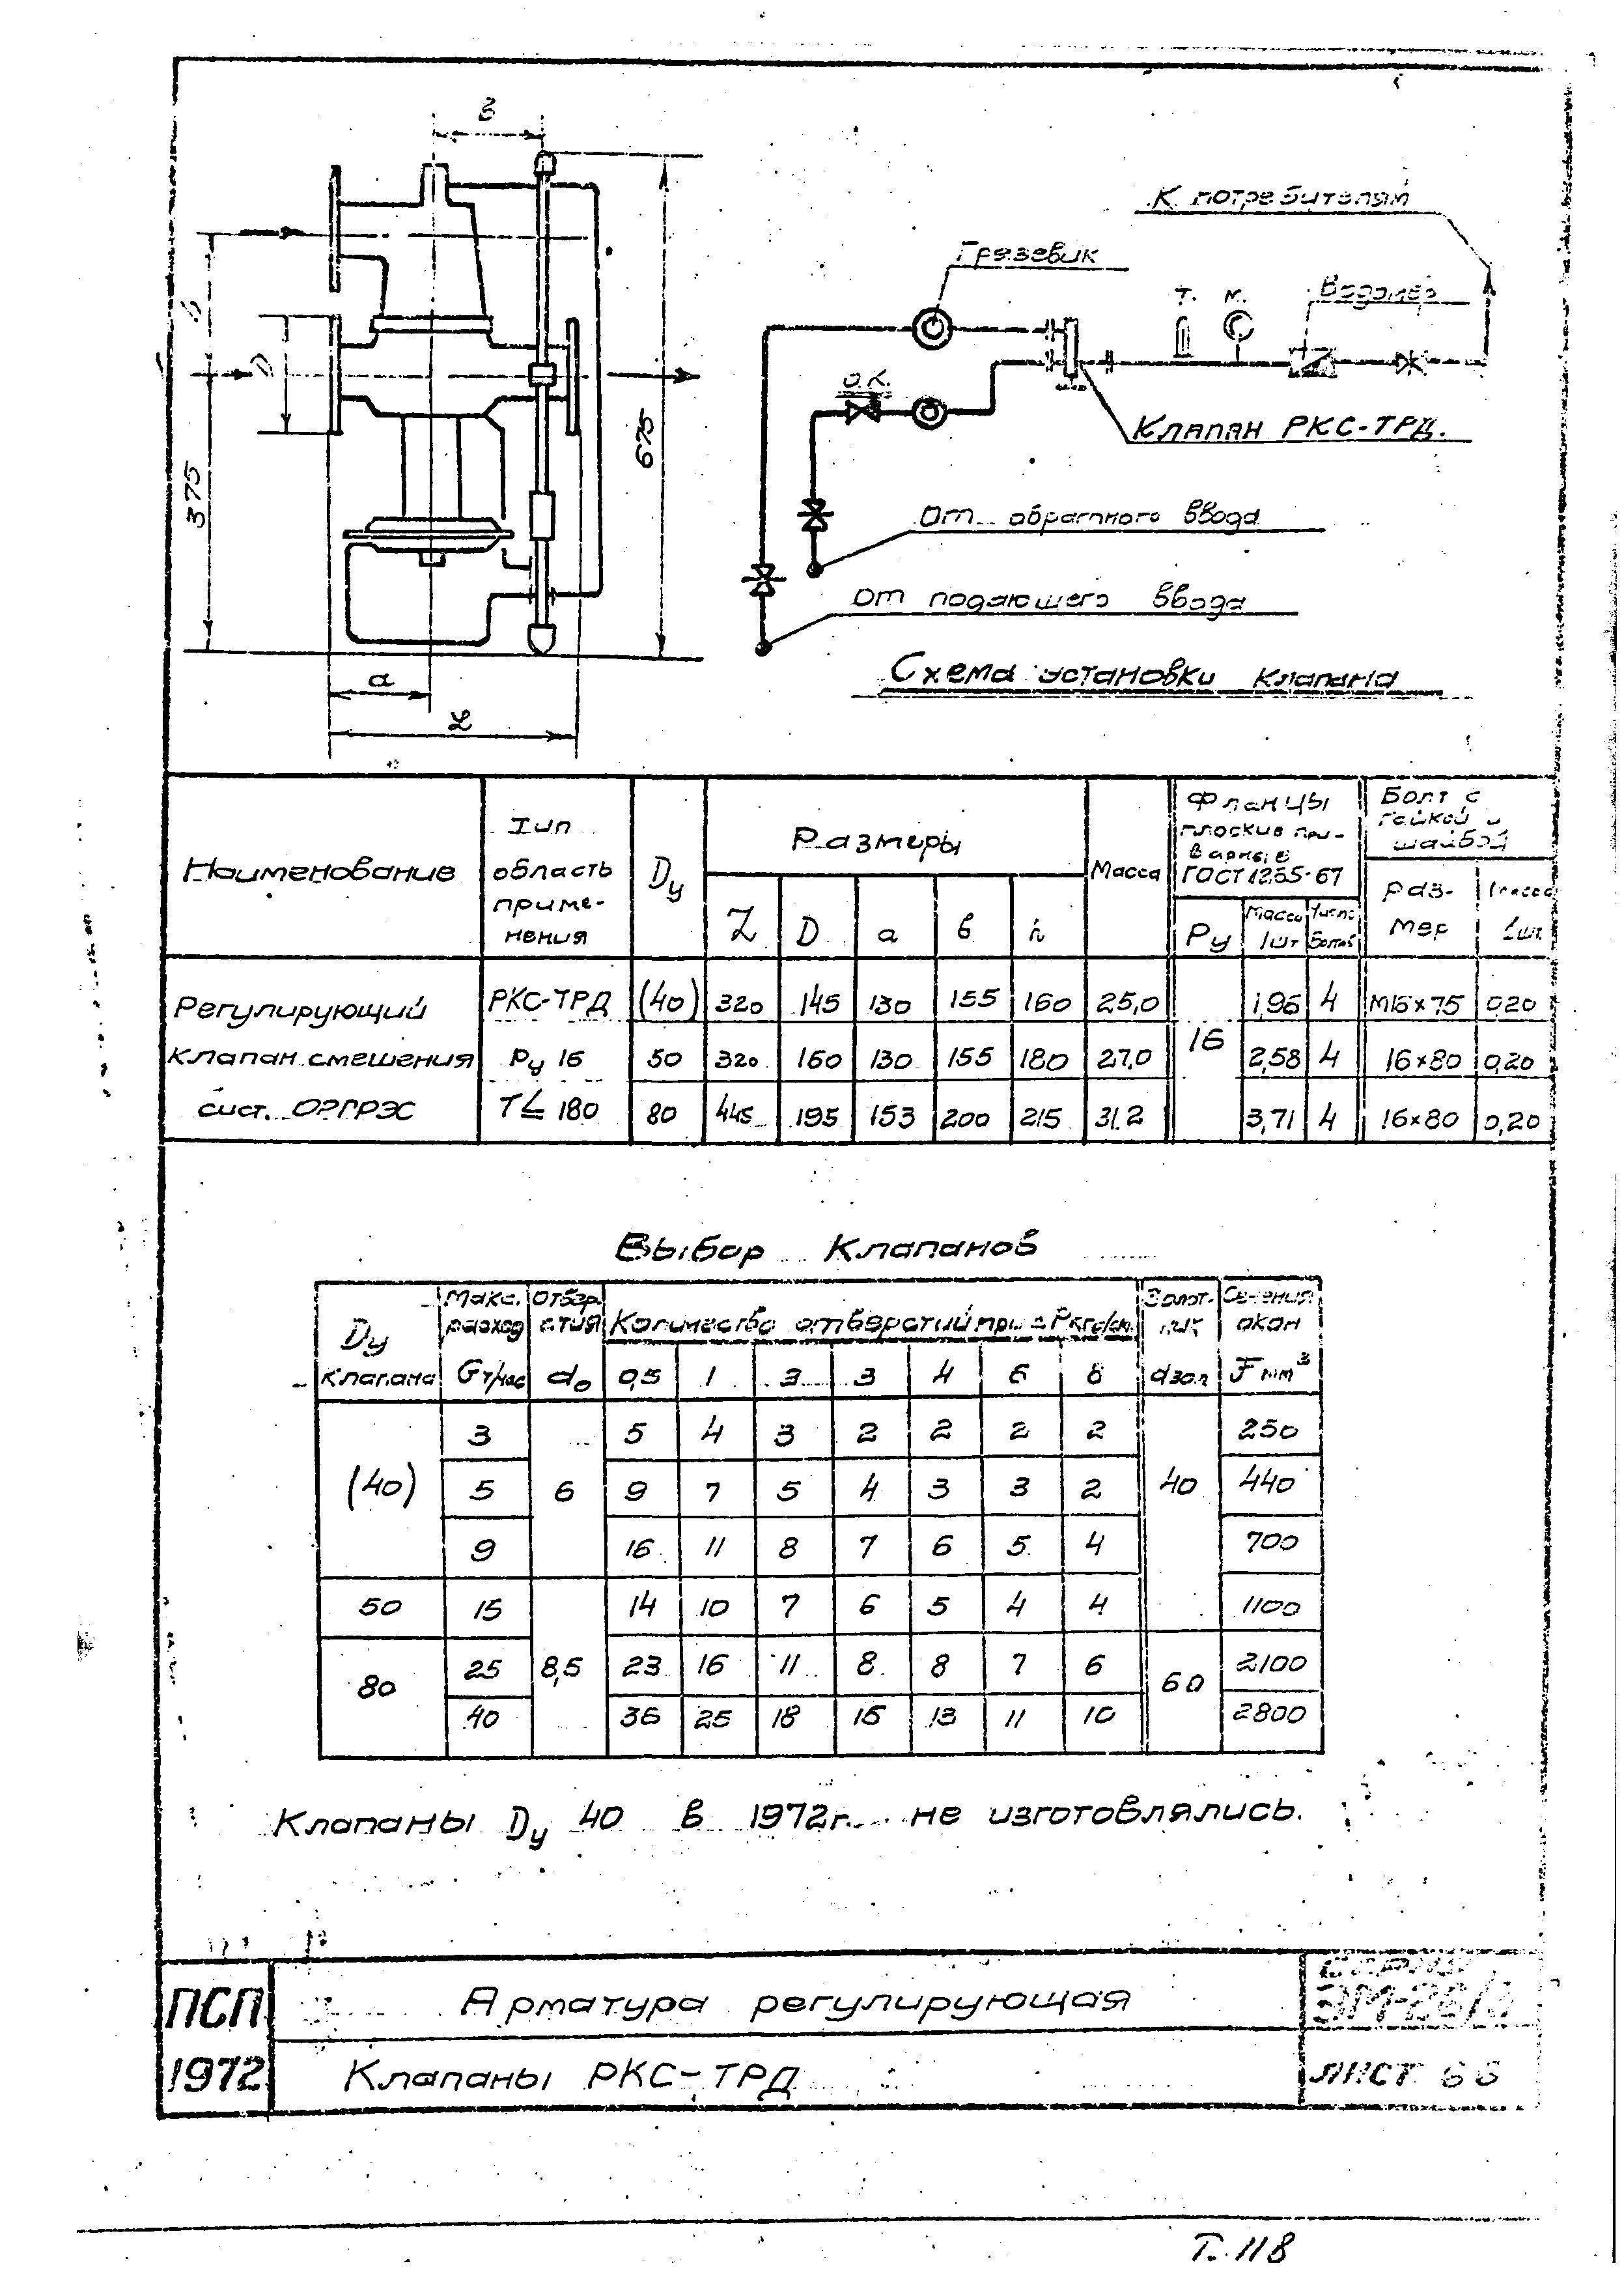 в
К потребителям
Грязевик
Т. М. Водомер
о.к.
D
675
Клапан РКС-ТРД.
375
От обратного ввода
от подающего ввода
Схема установки клапана
a
L
Наименование
Тип
область
приме-
нения
Dу
Размеры
L D a в h
Масса
Фланцы
плоские при-
варные
ГОСТ 1255-67
Pу Масса 1шт Число болтов
Болт с
гайкой и
шайбой
раз-
мер
Масса
1шт
Регулирующий РКС-ТРД (40) 320 145 130 155 160 25,0 1,96 4 М16×75 0,20
клапан смешения Pу 16 50 320 160 130 155 180 27,0 16 2,58 4 16×80 0,20
сист. ОРГРЭС T ≤ 180 80 445 195 153 200 215 31,2 3,71 4 16×80 0,20
Выбор клапанов
Dу
клапана
Макс.
расход
G т/час
Отвер
стия
dо
Количество отверстий при Δ Р кгс/см
0,5 1 2 3 4 6 8
Золот-
ник
d зол
Сечения
окон
F мм³
(40) 3 6 5 4 3 2 2 2 2 40 250
5 9 7 5 4 3 3 2 440
9 16 11 8 7 6 5 4 700
50 15 8,5 14 10 7 6 5 4 4 1100
80 25 23 16 11 8 8 7 6 60 2100
40 36 25 18 15 13 11 10 2800
Клапаны Dу 40 в 1972г. не изготовлялись.
ПСП
1972
Арматура регулирующая
Клапаны РКС-ТРД
серия
лист
Т. 118